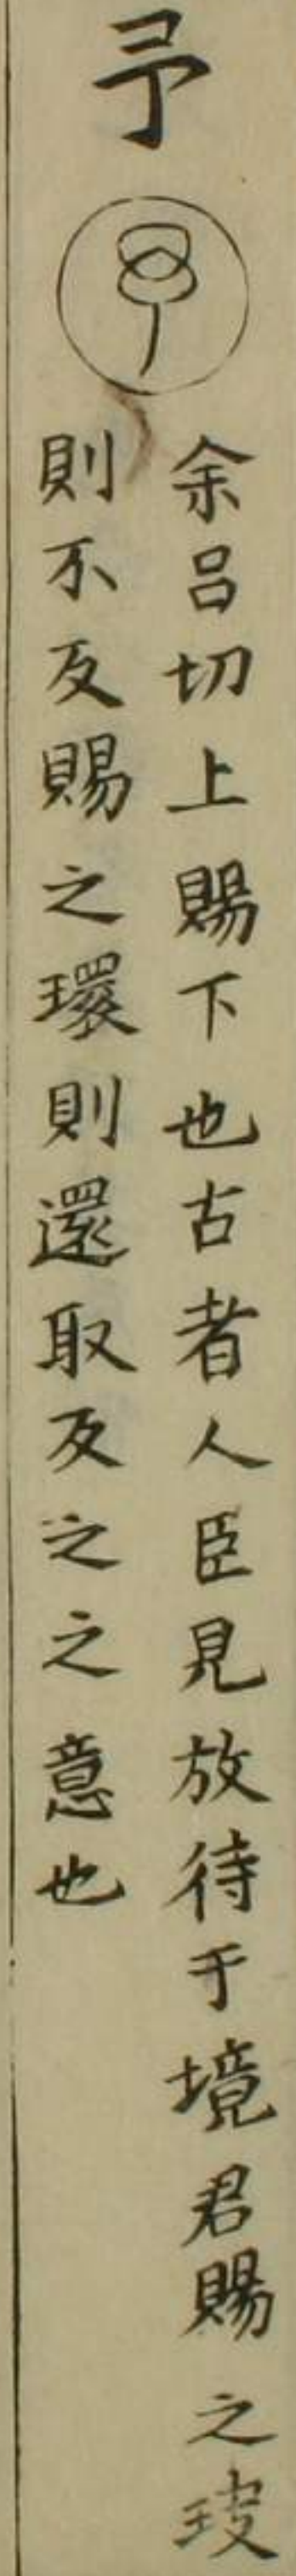 予
余呂切上賜下也古者人臣見放待于境君賜之玦
則不反賜之環則還取反之之意也